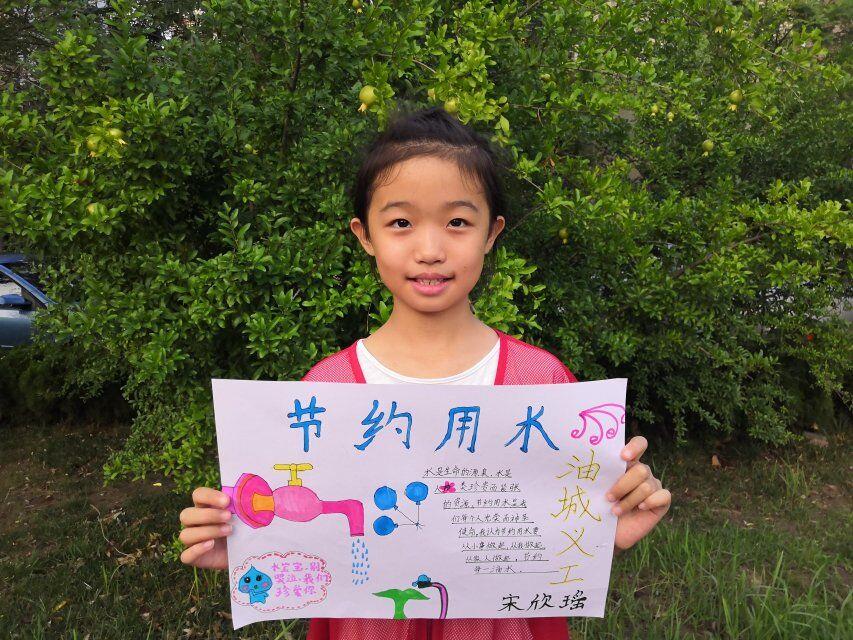 节约用水
水是生命的源泉,水是
人类珍贵而紧缺
的资源,节约用水是我
们每个人光荣而神圣
使命,我认为节约用水要
从小事做起,从我做起
从家人做起,节约
每一滴水
油城义工
水宝宝,别
哭泣,我们
珍爱你
宋欣瑶